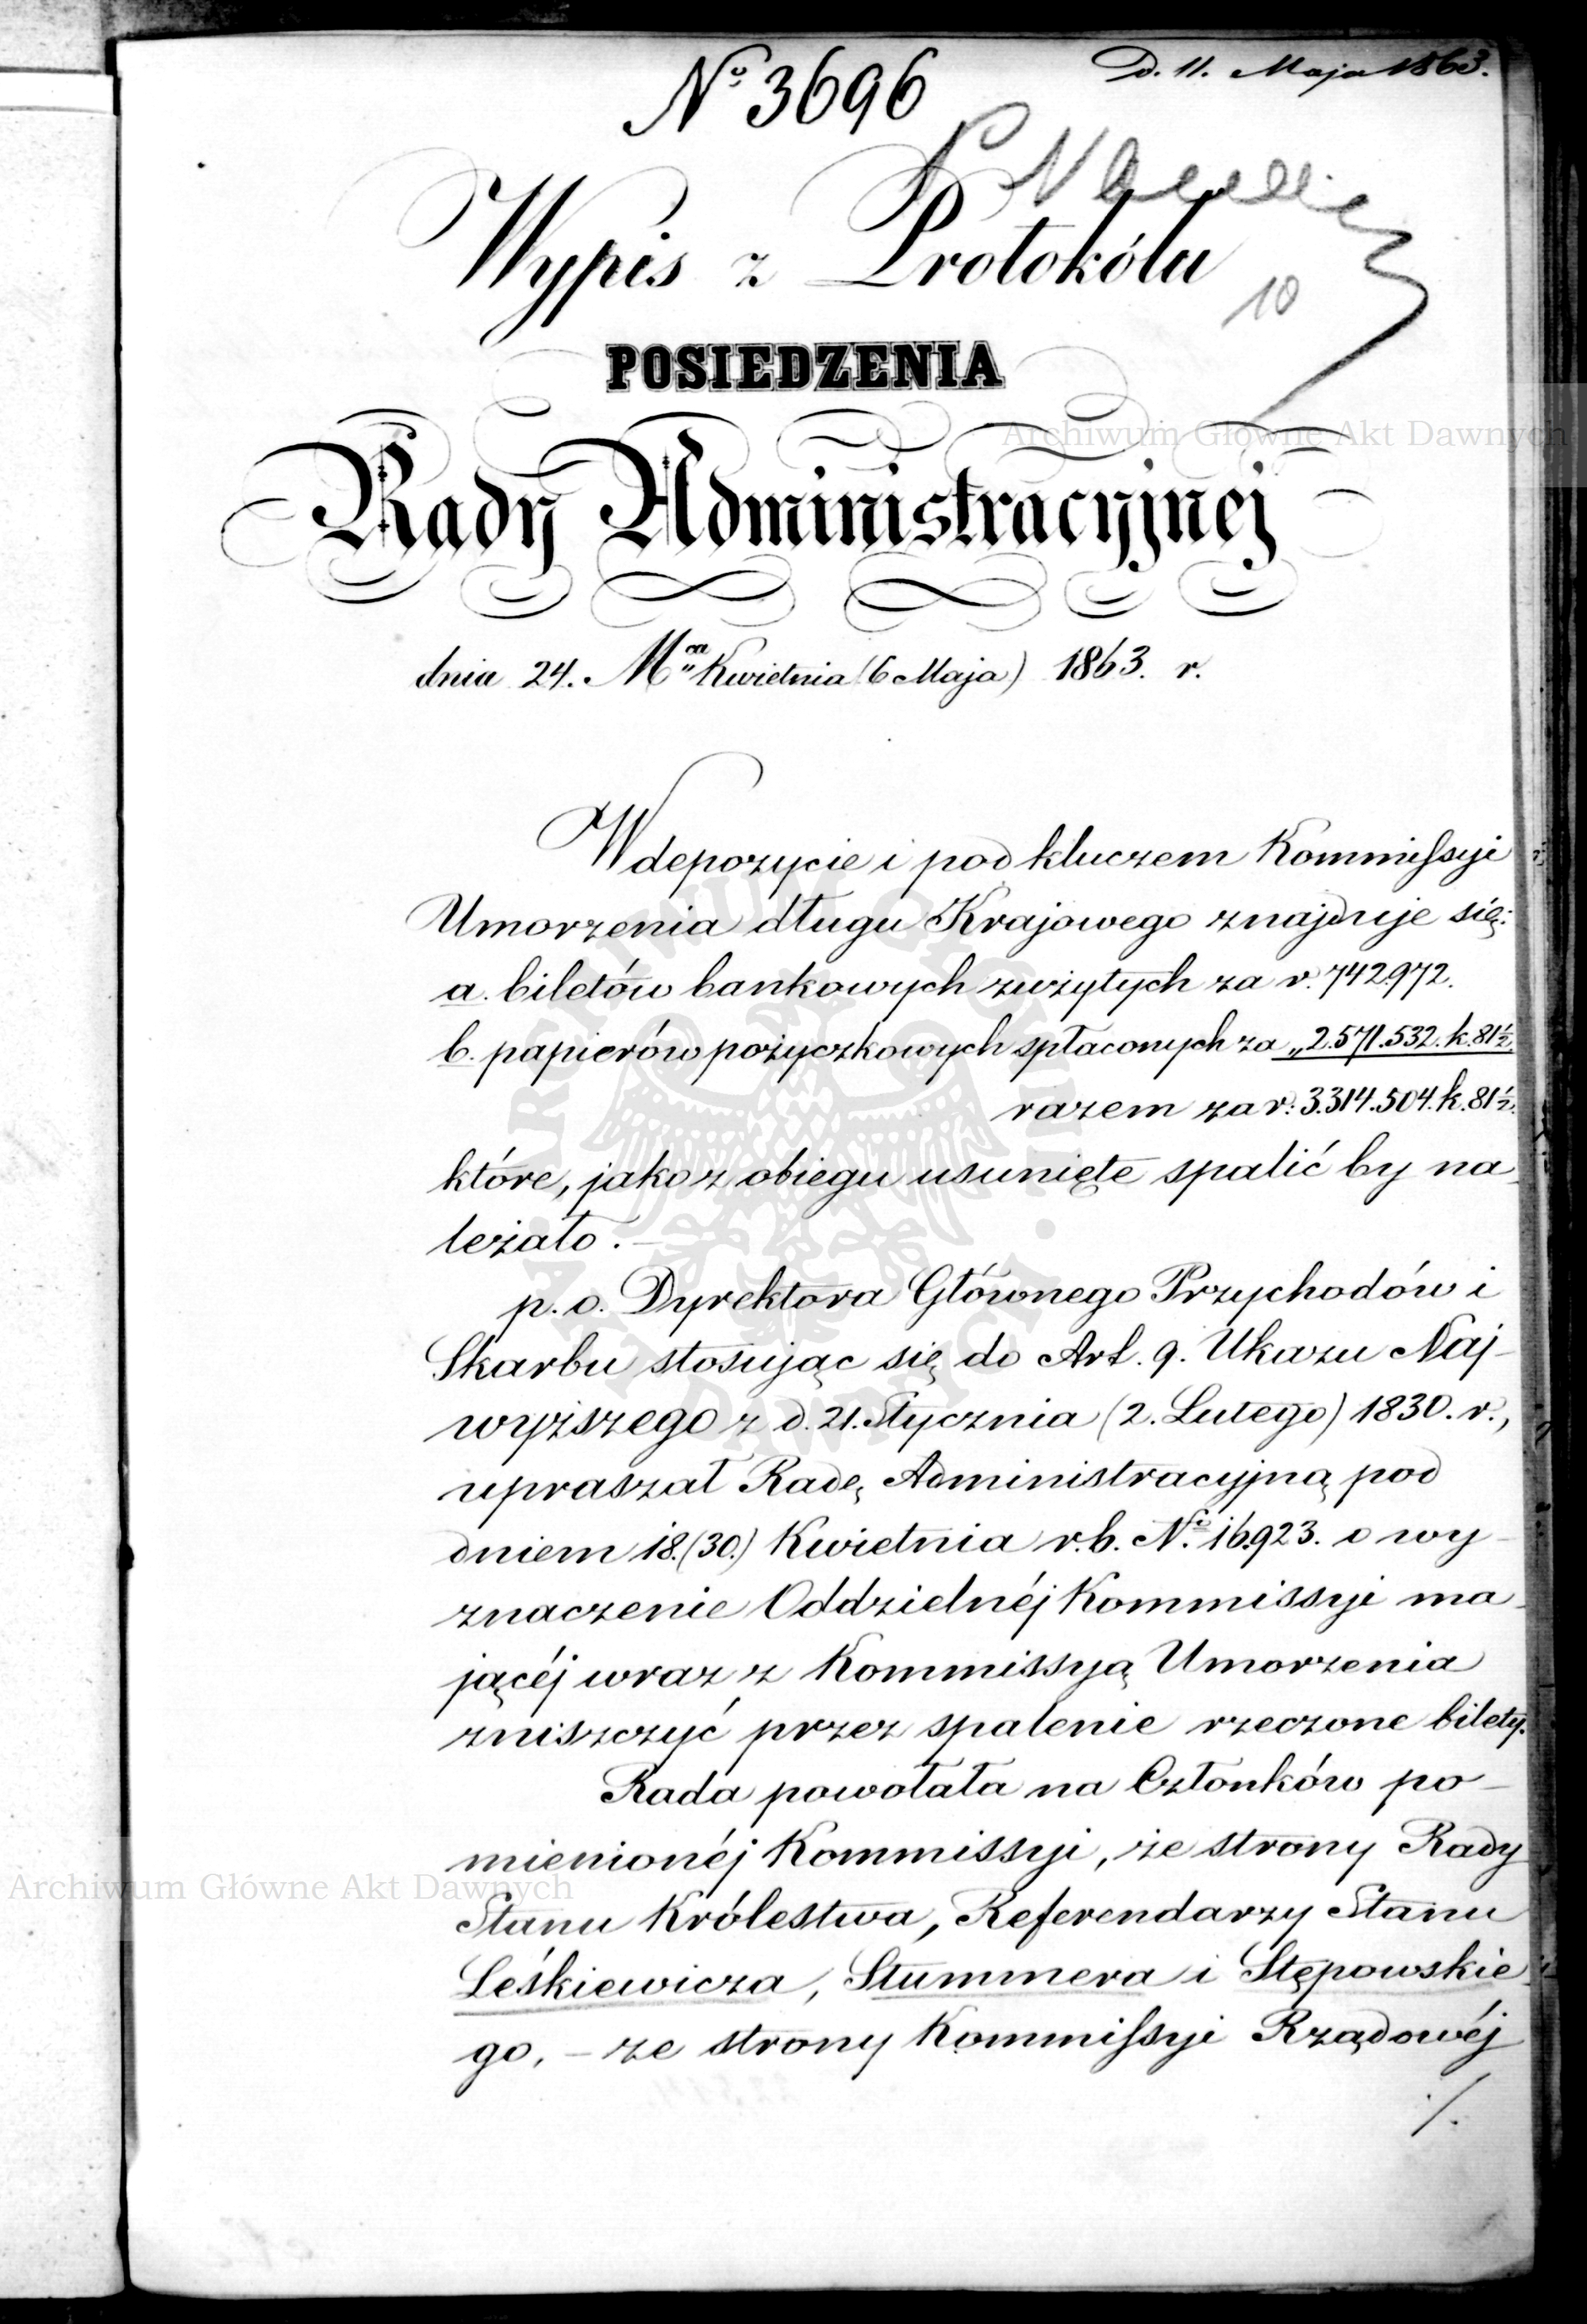 Nº 3696
D. 11. Maja 1863.
Wypis z Protokółu
10
POSIEDZENIA
Archiwum Główne Akt Dawnych
Rady Administracyjnej
dnia 24. Mca Kwietnia (6 Maja) 1863. r.
W depozycie i pod kluczem Kommissyi
Umorzenia długu Krajowego znajduje się:
a. biletów bankowych zużytych za r. 742.972.
b. papierów pożyczkowych spłaconych za „ 2.571.532. k. 81½.
razem za r: 3.314.504. k. 81½.
które, jako z obiegu usunięte spalić by na-
leżało. —
p. o. Dyrektora Głównego Przychodów i
Skarbu stosując się do Art. 9. Ukazu Naj-
wyższego z d. 21. Stycznia (2. Lutego) 1830. r.,
upraszał Radę Administracyjną pod
dniem 18. (30.) Kwietnia r. b. Nº 16.923. o wy-
znaczenie Oddzielnéj Kommissyi ma-
jącéj wraz z Kommissyą Umorzenia
zniszczyć przez spalenie rzeczone bilety.
Rada powołała na Członków po-
mienionéj Kommissyi, ze strony Rady
Archiwum Główne Akt Dawnych
Stanu Królestwa, Referendarzy Stanu
Leśkiewicza, Stummera i Stępowskie-
go, – ze strony Kommissyi Rządowéj
./.
ARCHIWUM GŁÓWNE · AKT DAWNYCH ·